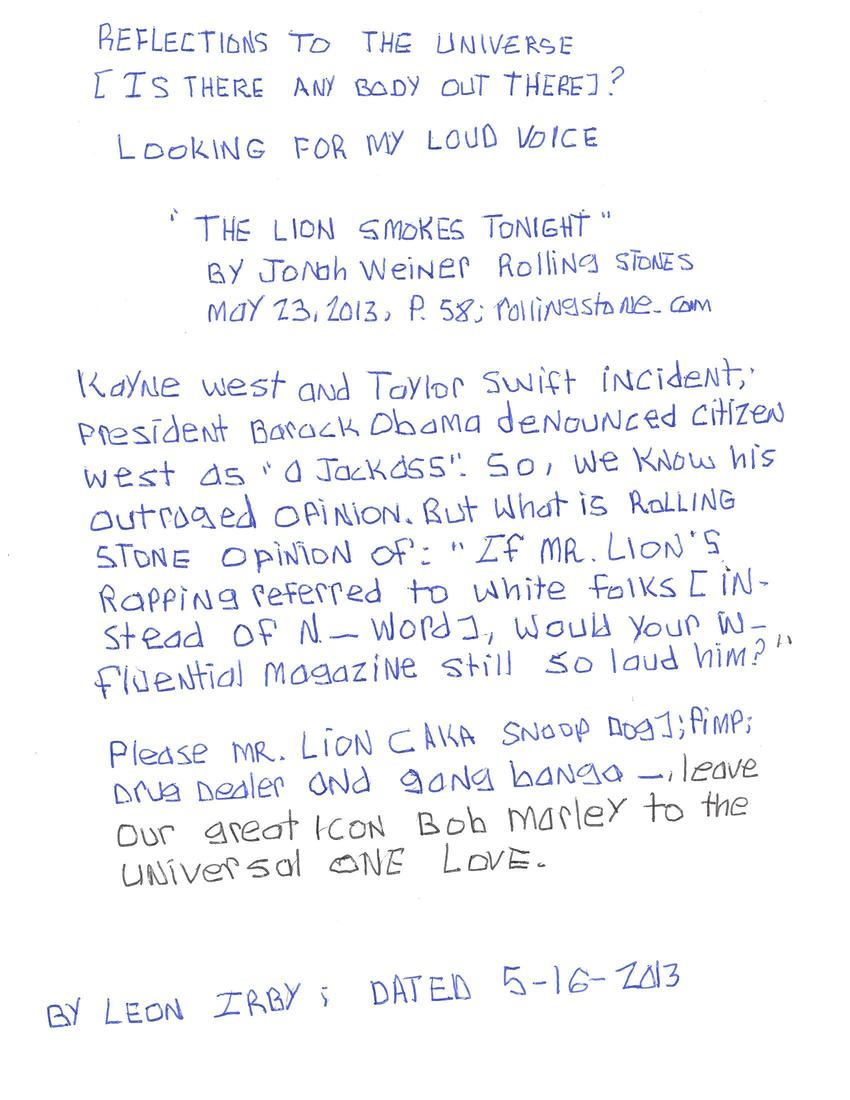 REFLECTIONS TO THE UNIVERSE
[IS THERE ANY BODY OUT THERE]?
LOOKING FOR MY LOUD VOICE
"THE LION SMOKES TONIGHT"
BY Jonah Weiner Rolling STONES
MAY 23, 2013, P. 58; rollingstone.com
Kayne west and Taylor Swift incident;
President Barack Obama denounced citizen
west as "a Jackass". So, we know his
outraged opinion. But what is ROLLING
STONE opinion of: "If MR. LION'S
Rapping referred to white folks [in-
stead of N— Word], would your in-
fluential magazine still so laud him?"
Please MR. LION [AKA SNOOP Dog]; pimp;
Drug Dealer and gang banga —, leave
our great ICON Bob Marley to the
universal ONE LOVE.
BY LEON IRBY; DATED 5-16-2013